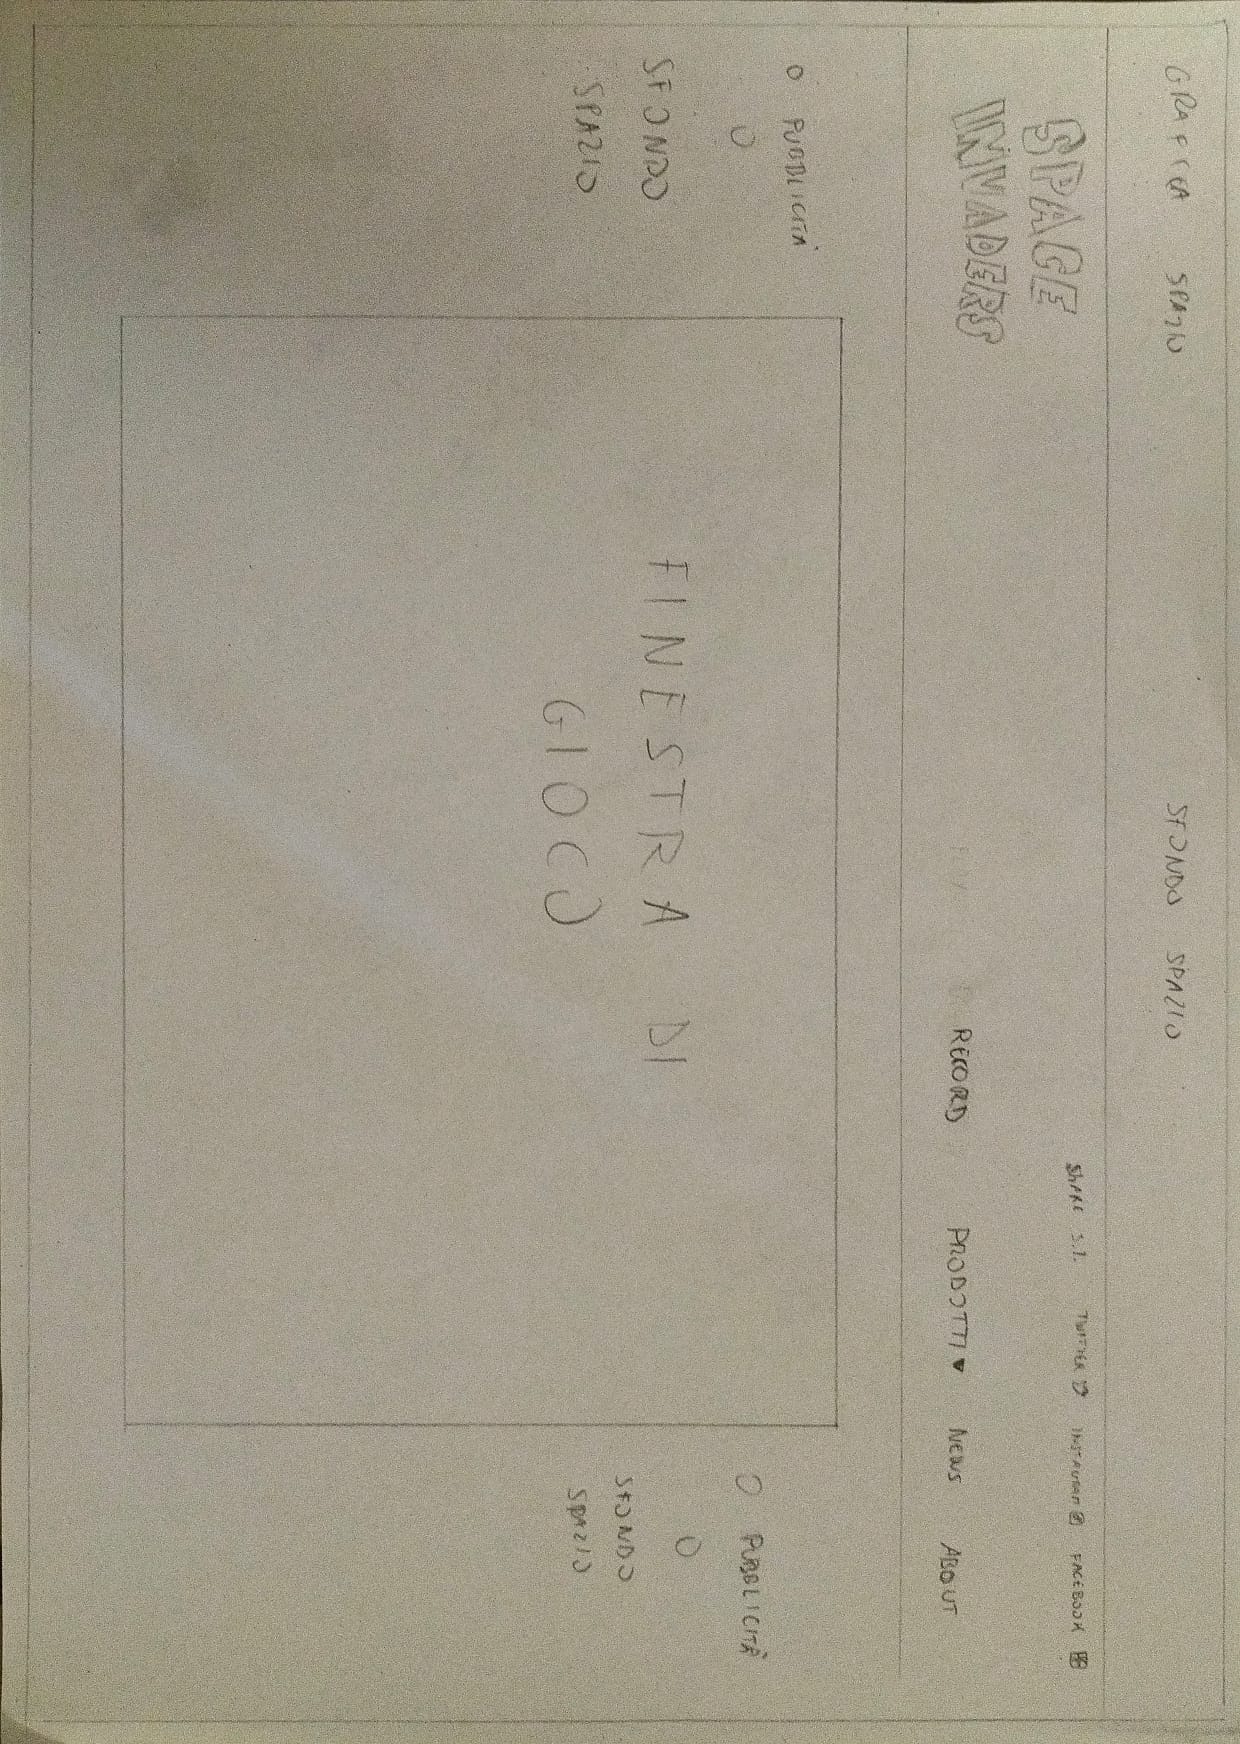 GRAFICA SPAZIO SFONDO SPAZIO
SPACE
INVADERS
SHARE S.I. TWITTER INSTAGRAM FACEBOOK
RECORD PRODOTTI▼ NEWS ABOUT
O PUBBLICITÀ
O
SFONDO
SPAZIO
FINESTRA DI
GIOCO
O PUBBLICITÀ
O
SFONDO
SPAZIO